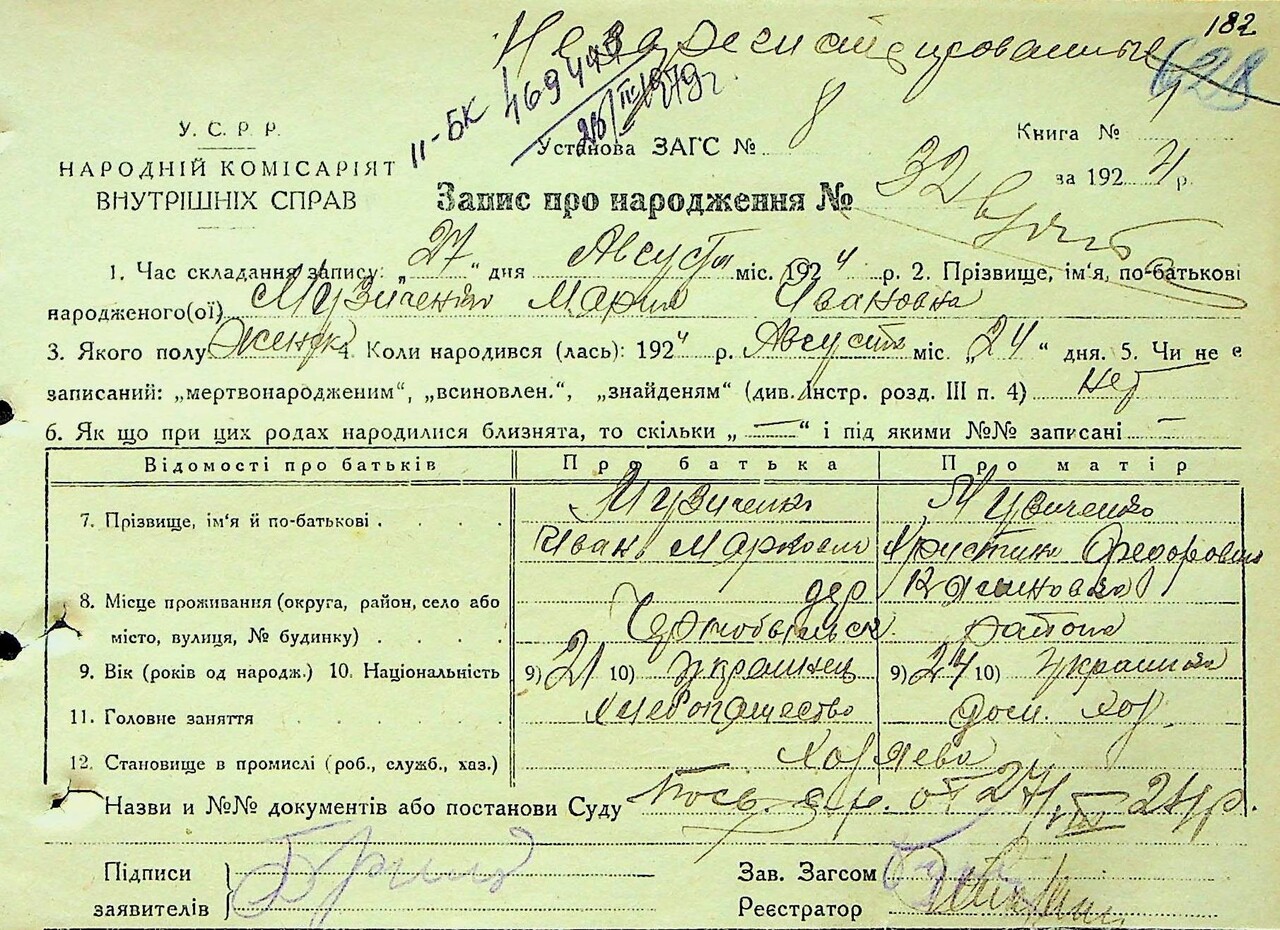 182
628
11-БК 469447
26/III 1979г
У. С. Р. Р.
НАРОДНІЙ КОМІСАРІЯТ
ВНУТРІШНІХ СПРАВ
Установа ЗАГС № 8
Книга №
за 1924 р.
Запис про народження № 32
1. Час складання запису: „27“ дня Августа міс. 1924 р. 2. Прізвище, ім'я, по-батькові
народженого(ої) Музиченко Мария Ивановна
3. Якого полу Женск 4. Коли народився (лась): 1924 р. Августа міс. „24“ дня. 5. Чи не є
записаний: „мертвонародженим“, „всиновлен.“, „знайденям“ (див. Інстр. розд. III п. 4) нет
6. Як що при цих родах народилися близнята, то скільки „—“ і під якими №№ записані —
Відомості про батьків Про батька Про матір
7. Прізвище, ім'я й по-батькові . . . . Музиченко Музиченко
Иван Маркович Христина Федоровна
8. Місце проживання (округа, район, село або дер
місто, вулиця, № будинку) . . . . района
9. Вік (років од народж.) 10. Національність 9) 21 10) украинец 9) 24 10) украинка
11. Головне заняття . . . . . хлебопашество дом. хоз.
12. Становище в промислі (роб., служб., хаз.) хозяева
Назви и №№ документів або постанови Суду от 27/VIII 24 р.
Підписи
заявителів
Зав. Загсом
Реєстратор